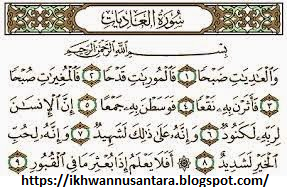 سُورَةُ العَادِيَات
بِسْمِ ٱللَّهِ ٱلرَّحْمَٰنِ ٱلرَّحِيمِ
وَٱلْعَٰدِيَٰتِ ضَبْحًا ١ فَٱلْمُورِيَٰتِ قَدْحًا ٢ فَٱلْمُغِيرَٰتِ صُبْحًا
٣ فَأَثَرْنَ بِهِۦ نَقْعًا ٤ فَوَسَطْنَ بِهِۦ جَمْعًا ٥ إِنَّ ٱلْإِنسَٰنَ
لِرَبِّهِۦ لَكَنُودٌ ٦ وَإِنَّهُۥ عَلَىٰ ذَٰلِكَ لَشَهِيدٌ ٧ وَإِنَّهُۥ لِحُبِّ
ٱلْخَيْرِ لَشَدِيدٌ ٨ ۞ أَفَلَا يَعْلَمُ إِذَا بُعْثِرَ مَا فِي ٱلْقُبُورِ ٩
https://ikhwannusantara.blogspot.com/